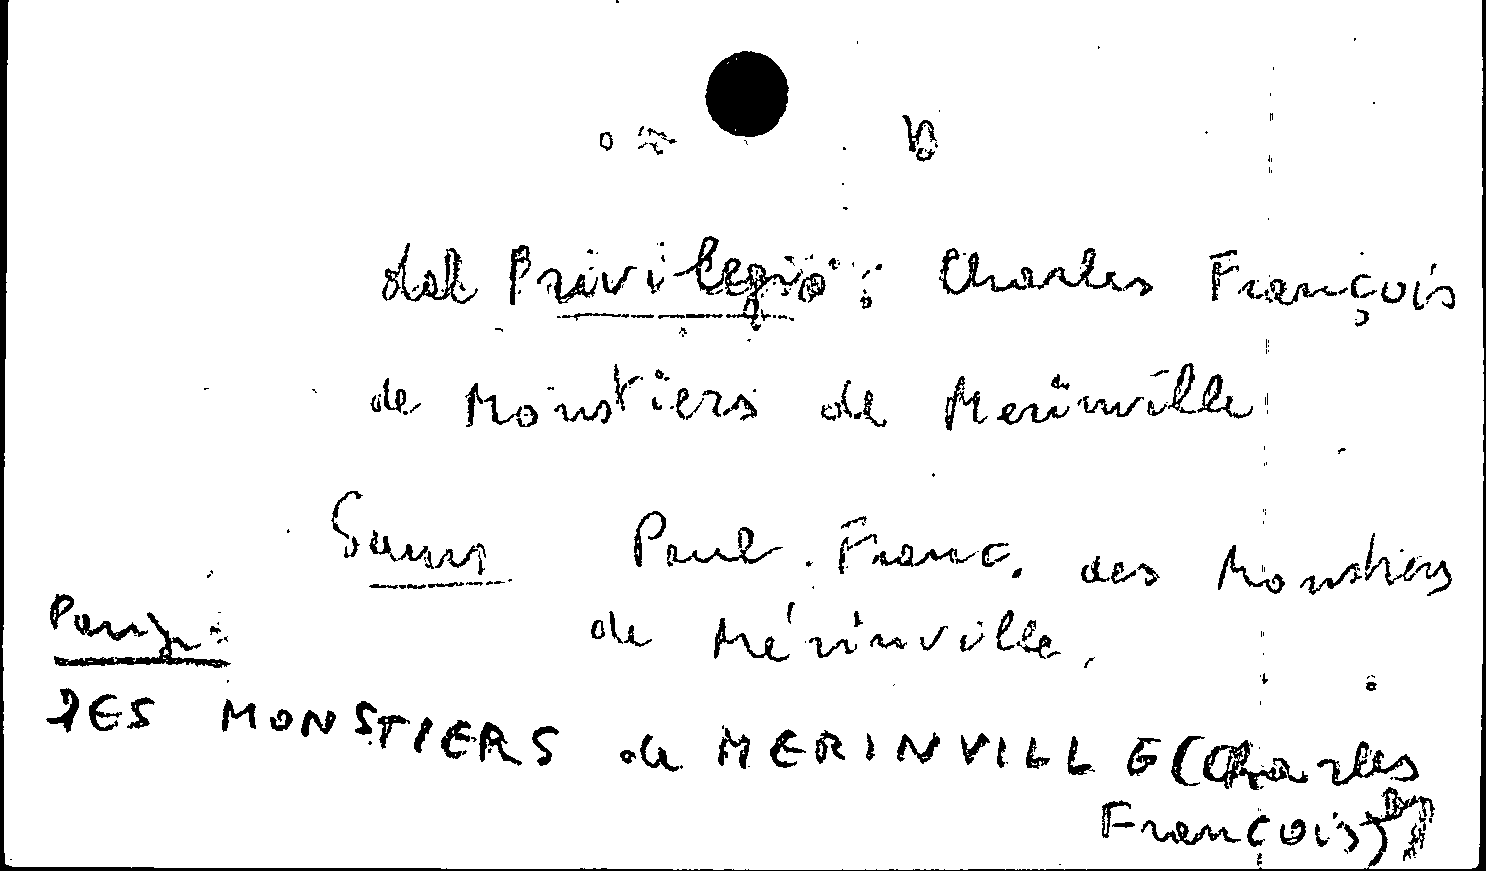 dal Privilegio : Charles François
de Monstiers de Merinville
Paul . Franc. des Monstiers
de Mérinville.
DES MONSTIERS de MERINVILLE (Charles
François)